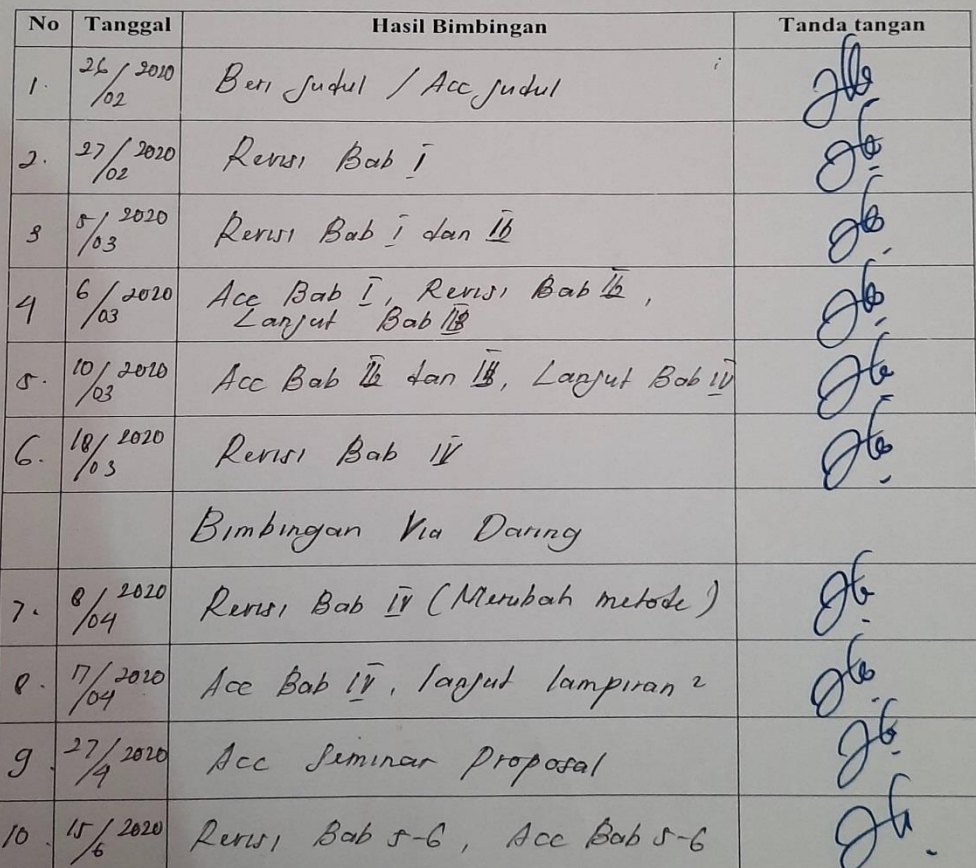 No Tanggal Hasil Bimbingan Tanda tangan
1. 26/02 2020 Beri Judul / Acc Judul
2. 27/02 2020 Revisi Bab I
3 5/03 2020 Revisi Bab I dan II
4 6/03 2020 Acc Bab I, Revisi Bab II,
Lanjut Bab III
5. 10/03 2020 Acc Bab II dan III, Lanjut Bab IV
6. 18/03 2020 Revisi Bab IV
Bimbingan Via Daring
7. 8/04 2020 Revisi Bab IV (Merubah metode)
8. 17/04 2020 Acc Bab IV, lanjut lampiran 2
9. 27/4 2020 Acc Seminar Proposal
10. 15/6 2020 Revisi Bab 5-6, Acc Bab 5-6